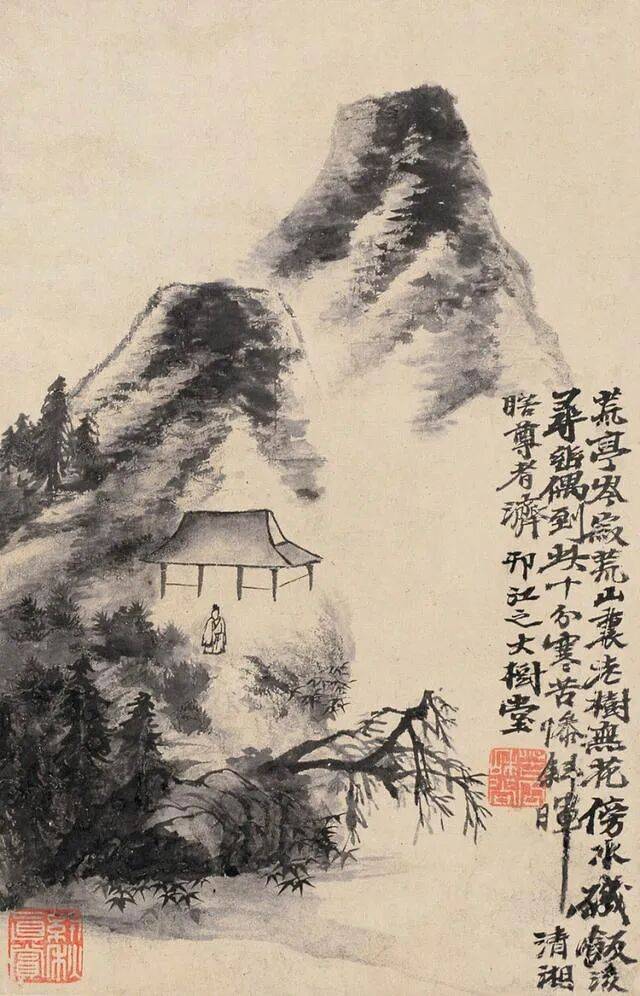 荒亭岑寂荒山裏老樹無花傍水磯飯後
尋詩偶到此十分寒苦慘斜暉清湘
瞎尊者濟邗江之大樹堂